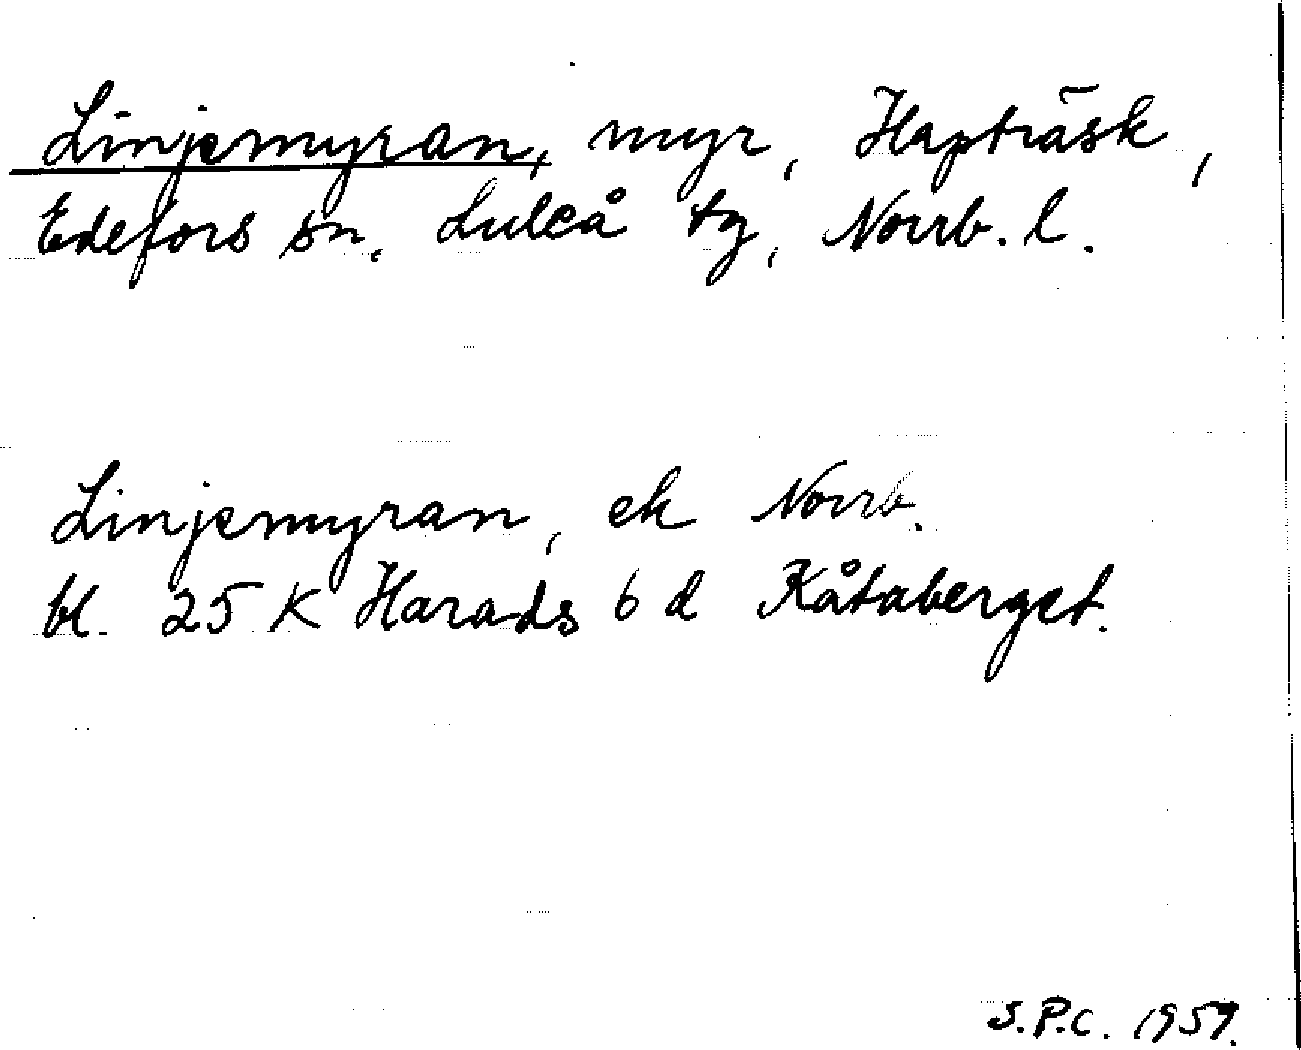 Linjemyran, myr, Hapträsk,
Edefors sn, Luleå tg, Norrb. l.
Linjemyran, ek Norrb.
bl. 25 K Harads 6 d Kåtaberget.
S.P.C. 1959.